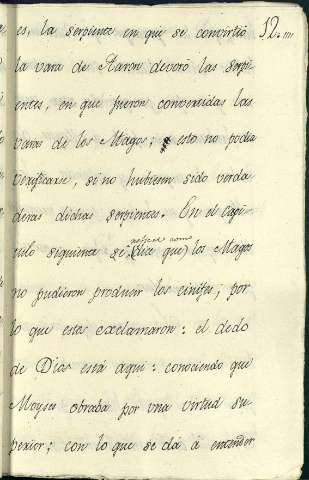 es, la serpiente en que se convirtió
12.
la vara de Aaron devoró las serpi
entes, en que fueron convertidas las
varas de los Magos; esto no podia
verificarse, si no hubieran sido verda
deras dichas serpientes. En el capi
tulo siguiente se dice que los Magos
no pudieron producir los cinifes; por
lo que estos exclamaron: el dedo
de Dios está aqui: conociendo que
Moyses obraba por una virtud su
perior; con lo que se dá á entender